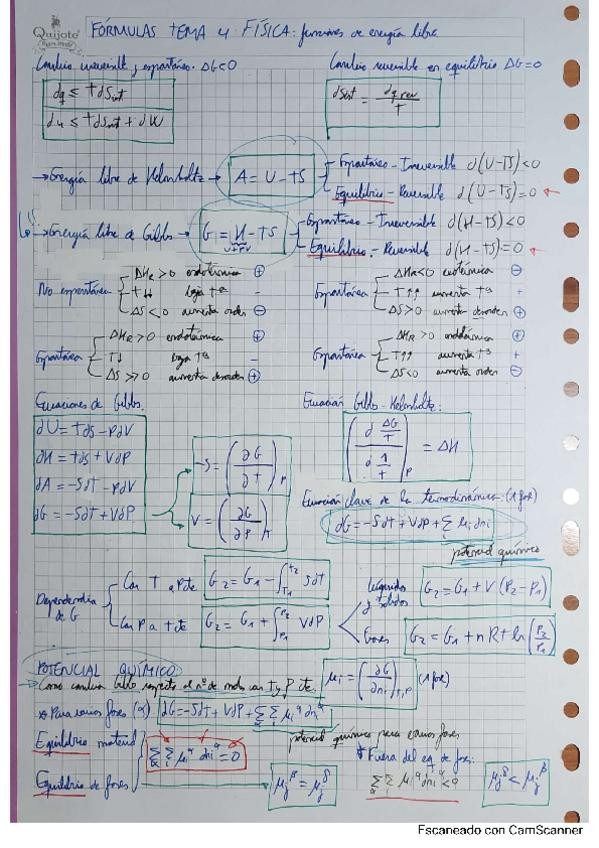 Quijote
FÓRMULAS TEMA 4 FÍSICA: funciones de energía libre
Cambio irreversible y espontáneo. ΔG<0
Cambio reversible en equilibrio ΔG=0
dq ≤ TdSsist
dU ≤ TdSsist + dW
dSsist = dqrev/T
→ Energía libre de Helmholtz → A = U-TS
Espontáneo - Irreversible d(U-TS)<0
Equilibrio - Reversible d(U-TS)=0
→ Energía libre de Gibbs → G = H - TS
U+PV
Espontáneo - Irreversible d(H-TS)<0
Equilibrio - Reversible d(H-TS)=0
No espontánea
ΔHR>0 endotérmica ⊕
T↓↓ baja tª -
ΔS<0 aumenta orden ⊖
Espontánea
ΔHR<0 exotérmica ⊖
T↑↑ aumenta tª +
ΔS>0 aumenta desorden ⊕
Espontánea
ΔHR>0 endotérmica ⊕
T↓ baja tª -
ΔS>>0 aumenta desorden ⊕
Espontánea
ΔHR>0 endotérmica ⊕
T↑↑ aumenta tª +
ΔS<0 aumenta orden ⊖
Ecuaciones de Gibbs.
dU = TdS - PdV
dH = TdS + VdP
dA = -SdT - PdV
dG = -SdT + VdP
-S = (∂G/∂T)P
V = (∂G/∂P)T
Ecuación Gibbs - Helmholtz:
(d ΔG/T / d 1/T)P = ΔH
Ecuación clave de la termodinámica: (1 fase)
dG = -SdT + VdP + Σi μi dni
potencial químico
Dependencia de G
Con T a P cte G2 = G1 - ∫T1T2 SdT
Con P a T cte G2 = G1 + ∫P1P2 VdP
líquidos y sólidos G2 = G1 + V(P2-P1)
Gases G2 = G1 + nRT ln(P2/P1)
POTENCIAL QUÍMICO
→ Como cambia Gibbs respecto al nº de moles con T y P cte. μi = (∂G/∂ni)T,P (1 fase)
* Para varias fases (α) dG = -SdT + VdP + Σα Σi μiα dniα
potencial químico para varias fases
Equilibrio material
Σα Σi μiα dniα = 0
Equilibrio de fases
μjβ = μjδ
* Fuera del eq de fase:
Σα Σi μiα dniα < 0
μjδ < μjβ
Escaneado con CamScanner